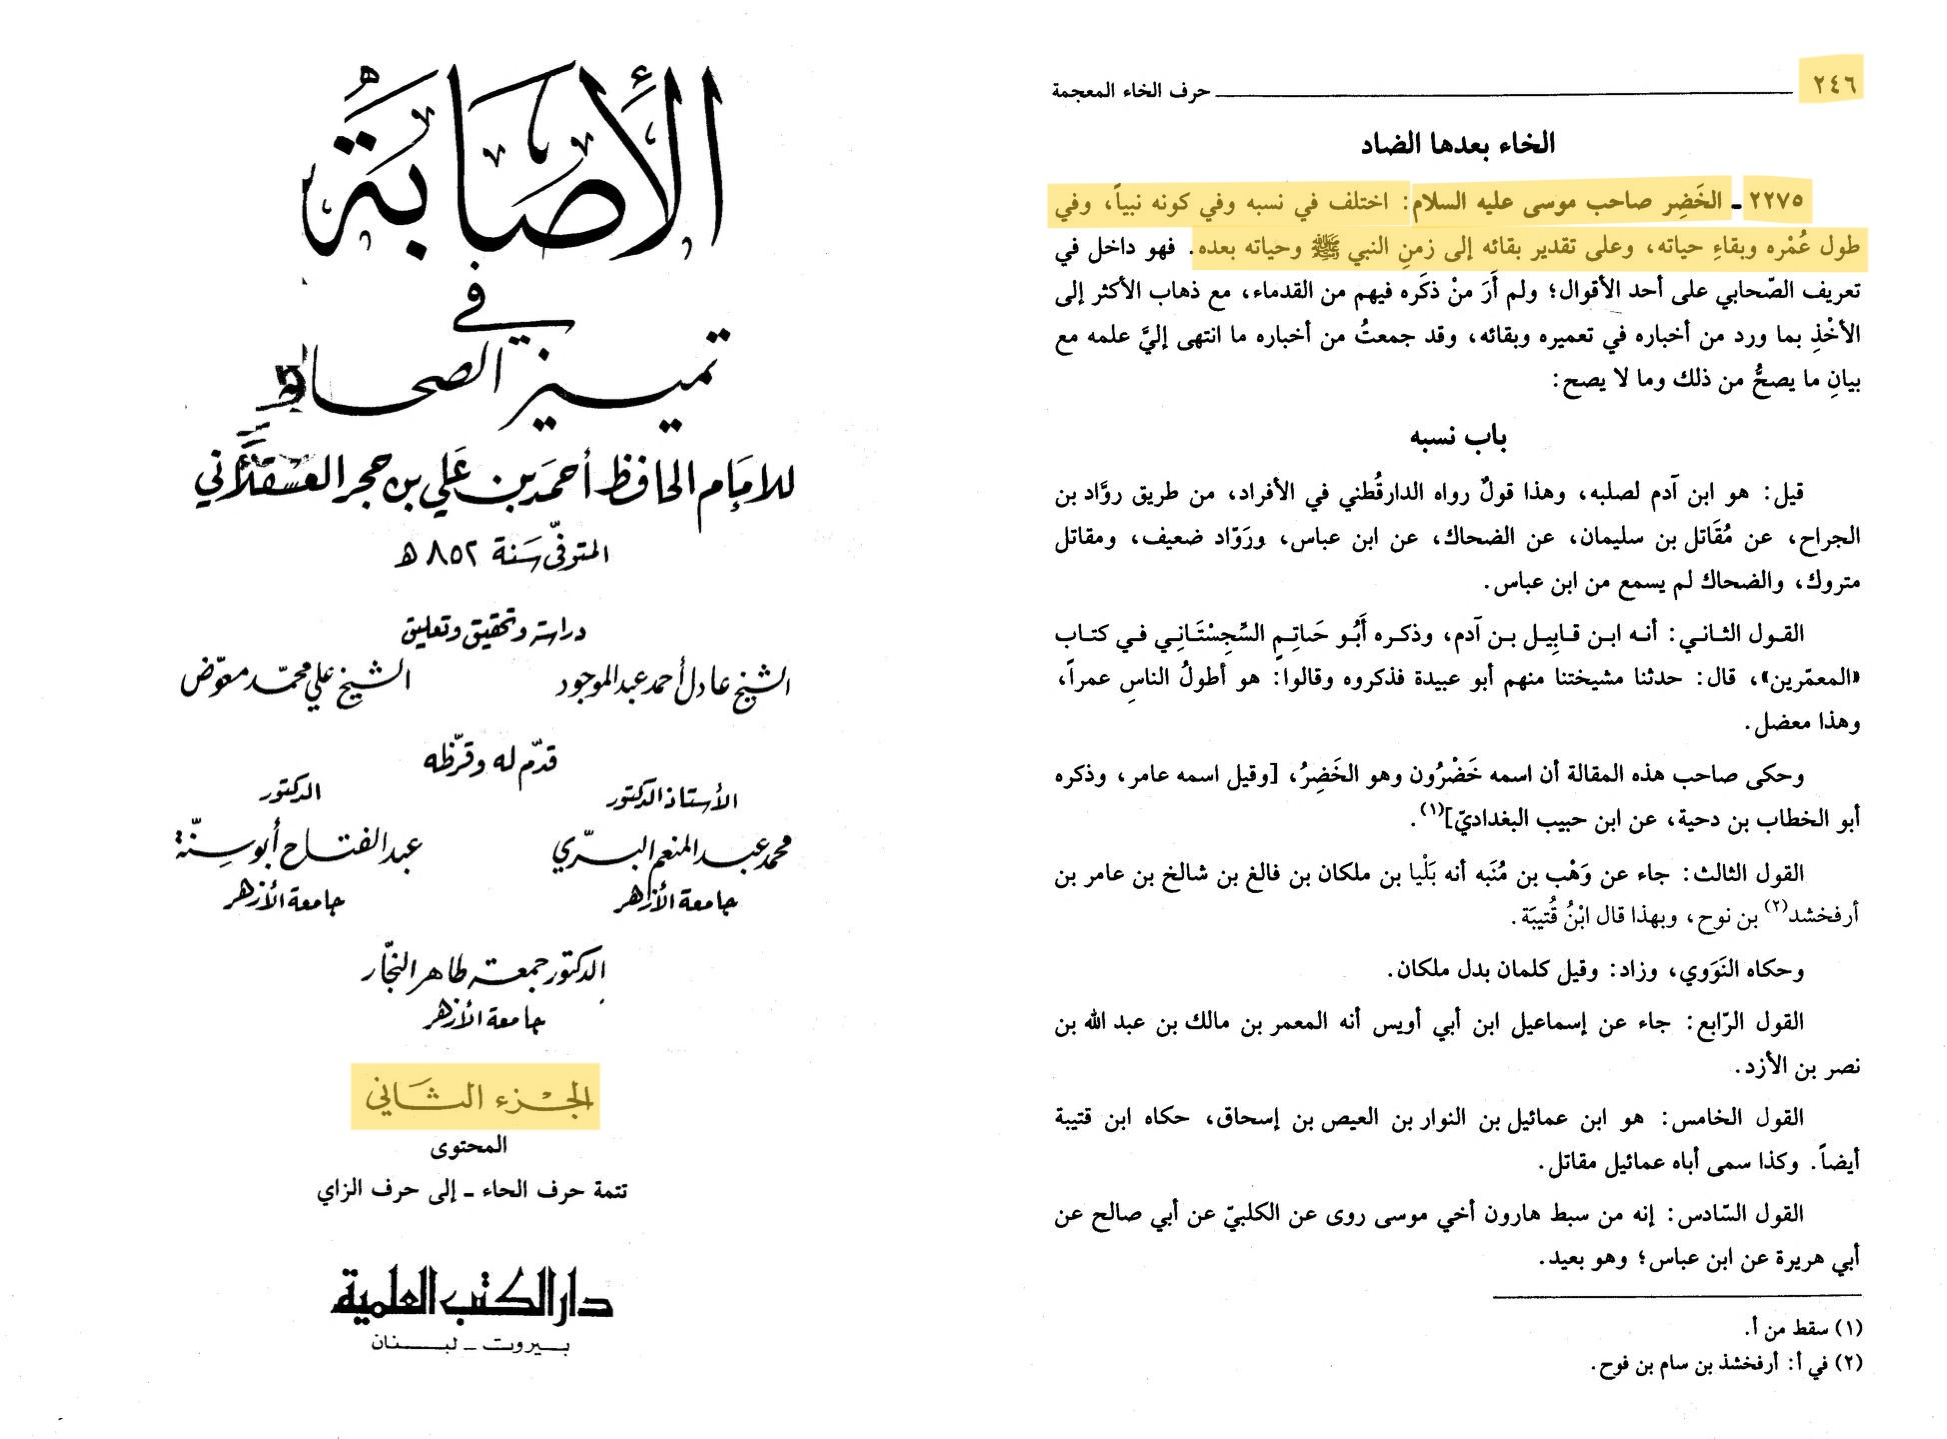 الأصابة
في
تمييز الصحابة
للإمام الحافظ أحمد بن علي بن حجر العسقلاني
المتوفى سنة ٨٥٢ هـ
دراسة وتحقيق وتعليق
الشيخ عادل أحمد عبد الموجود الشيخ علي محمد معوّض
قدّم له وقرّظه
الأستاذ الدكتور الدكتور
محمد عبد المنعم البرّي عبد الفتاح أبو سنّة
جامعة الأزهر جامعة الأزهر
الدكتور جمعة طاهر النجّار
جامعة الأزهر
الجزء الثاني
المحتوى
تتمة حرف الحاء ـ إلى حرف الزاي
دار الكتب العلمية
بيروت ـ لبنان
٢٤٦ حرف الخاء المعجمة
الخاء بعدها الضاد
٢٢٧٥ ـ الخَضِر صاحب موسى عليه السلام: اختلف في نسبه وفي كونه نبياً، وفي
طول عُمْره وبقاءِ حياته، وعلى تقدير بقائه إلى زمنِ النبي ﷺ وحياته بعده. فهو داخل في
تعريف الصّحابي على أحد الأقوال؛ ولم أَرَ منْ ذكَره فيهم من القدماء، مع ذهاب الأكثر إلى
الأخْذِ بما ورد من أخباره في تعميره وبقائه، وقد جمعتُ من أخباره ما انتهى إليَّ علمه مع
بيانِ ما يصحُّ من ذلك وما لا يصح:
باب نسبه
قيل: هو ابن آدم لصلبه، وهذا قولٌ رواه الدارقُطني في الأفراد، من طريق روَّاد بن
الجراح، عن مُقَاتل بن سليمان، عن الضحاك، عن ابن عباس، ورَوّاد ضعيف، ومقاتل
متروك، والضحاك لم يسمع من ابن عباس.
القول الثاني: أنه ابن قابِيل بن آدم، وذكره أَبُو حَاتِمٍ السِّجِسْتَانِي في كتاب
«المعمّرين»، قال: حدثنا مشيختنا منهم أبو عبيدة فذكروه وقالوا: هو أطولُ الناسِ عمراً،
وهذا معضل.
وحكى صاحب هذه المقالة أن اسمه خَضْرُون وهو الخَضِرُ، [وقيل اسمه عامر، وذكره
أبو الخطاب بن دحية، عن ابن حبيب البغداديّ](١).
القول الثالث: جاء عن وَهْب بن مُنَبه أنه بَلْيا بن ملكان بن فالغ بن شالخ بن عامر بن
أرفخشد(٢) بن نوح، وبهذا قال ابْنُ قُتيبَة.
وحكاه النَوَوي، وزاد: وقيل كلمان بدل ملكان.
القول الرّابع: جاء عن إسماعيل ابن أبي أويس أنه المعمر بن مالك بن عبد الله بن
نصر بن الأزد.
القول الخامس: هو ابن عمائيل بن النوار بن العيص بن إسحاق، حكاه ابن قتيبة
أيضاً. وكذا سمى أباه عمائيل مقاتل.
القول السّادس: إنه من سبط هارون أخي موسى روى عن الكلبيّ عن أبي صالح عن
أبي هريرة عن ابن عباس؛ وهو بعيد.
(١) سقط من أ.
(٢) في أ: أرفخشذ بن سام بن فوح.